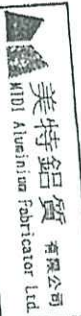 美特鋁質 有限公司
MIDI Aluminium Fabricator Ltd.